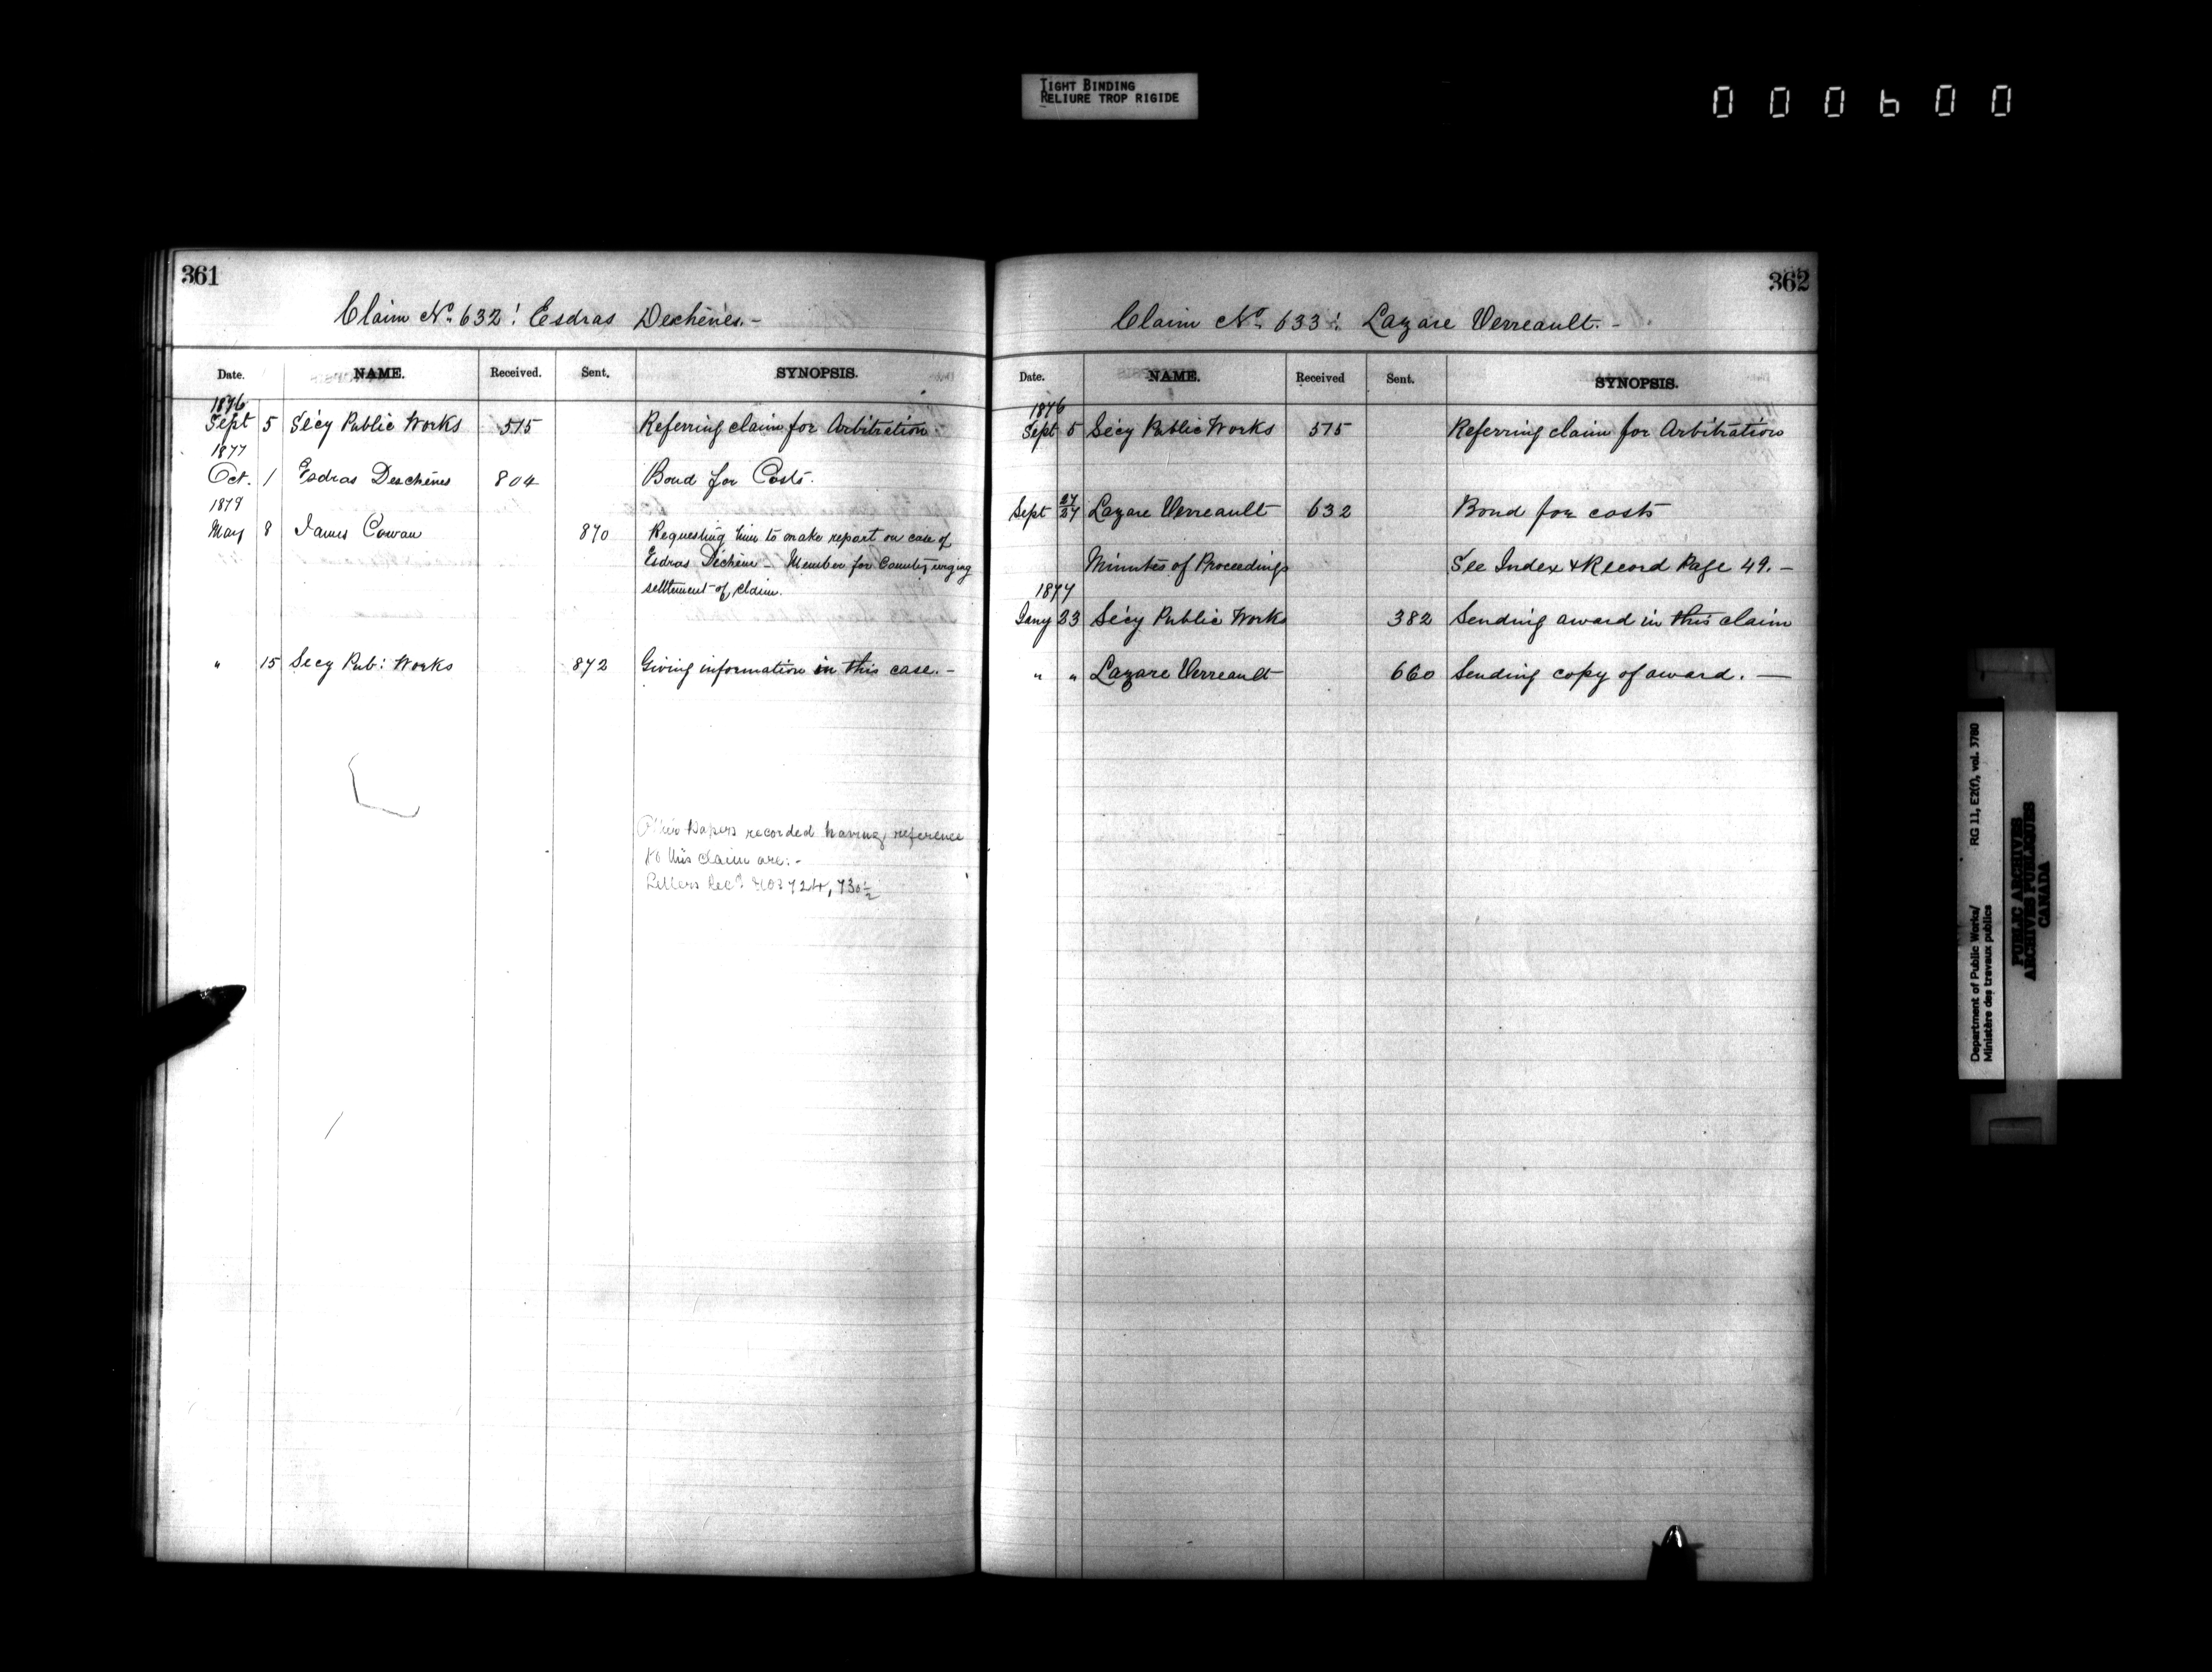 TIGHT BINDING
RELIURE TROP RIGIDE
000600
361
Claim No. 632: Esdras Deschênes.-
Date. NAME. Received. Sent. SYNOPSIS.
1876
Sept 5 Secy Public Works 515 Referring claim for Arbitration.
1877
Oct. 1 Esdras Deschênes 804 Bond for Costs.
1879
May 8 James Cowan 870 Requesting him to make report on case of
Esdras Dechêne - Member for County, urging
settlement of claim.
" 15 Secy Pub: Works 872 Giving information in this case.-
Other Papers recorded having reference
to this claim are:-
Letters Recd Nos 724, 730½
362
Claim No. 633: Lazare Verreault.-
Date. NAME. Received Sent. SYNOPSIS.
1876
Sept 5 Secy Public Works 515 Referring claim for Arbitration
Sept Lazare Verreault 632 Bond for costs
Minutes of Proceedings See Index & Record Page 49.-
1877
Jany 23 Secy Public Works 382 Sending award in this claim
" " Lazare Verreault 660 Sending copy of award. —
Department of Public Works/ RG 11, E2(f), vol. 3780
Ministère des travaux publics
PUBLIC ARCHIVES
ARCHIVES PUBLIQUES
CANADA